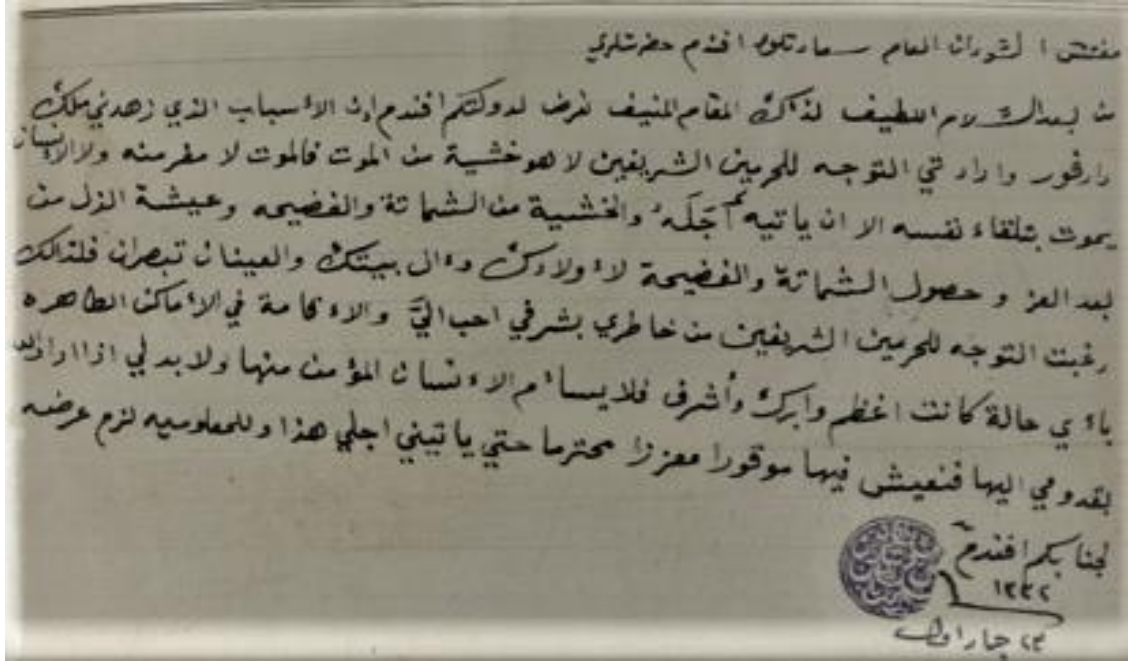 مفتش السودان العام سعادتلو افندم حضرتلري
من بعد السلام اللطيف لذاك المقام المنيف نعرض لدولتكم افندم إن الأسباب الذي زهدني ملك
دارفور وارادتي التوجه للحرمين الشريفين لا هو خشية من الموت فالموت لا مفر منه ولا الانسان
يموت بتلقاء نفسه الا ان ياتيه أجله والخشية من الشماتة والفضيحه وعيشة الذل من
بعد العز وحصول الشماتة والفضيحة لأولادك وءال بيتك والعينان تبصران فلذالك
رغبت التوجه للحرمين الشريفين من خاطري بشرفي احب اليّ والاءقامة في الأماكن الطاهره
بأي حالة كانت اعظم وابرك وأشرف فلا يسأم الاءنسان المؤمن منها ولا بد لي اذا اراد الله
بقدومي اليها فنعيش فيها موقورا معززا محترما حتي ياتيني اجلي هذا وللمعلوميه لزم عرضه
لجنابكم افندم
١٣٣٢
٢٣ جماد اول